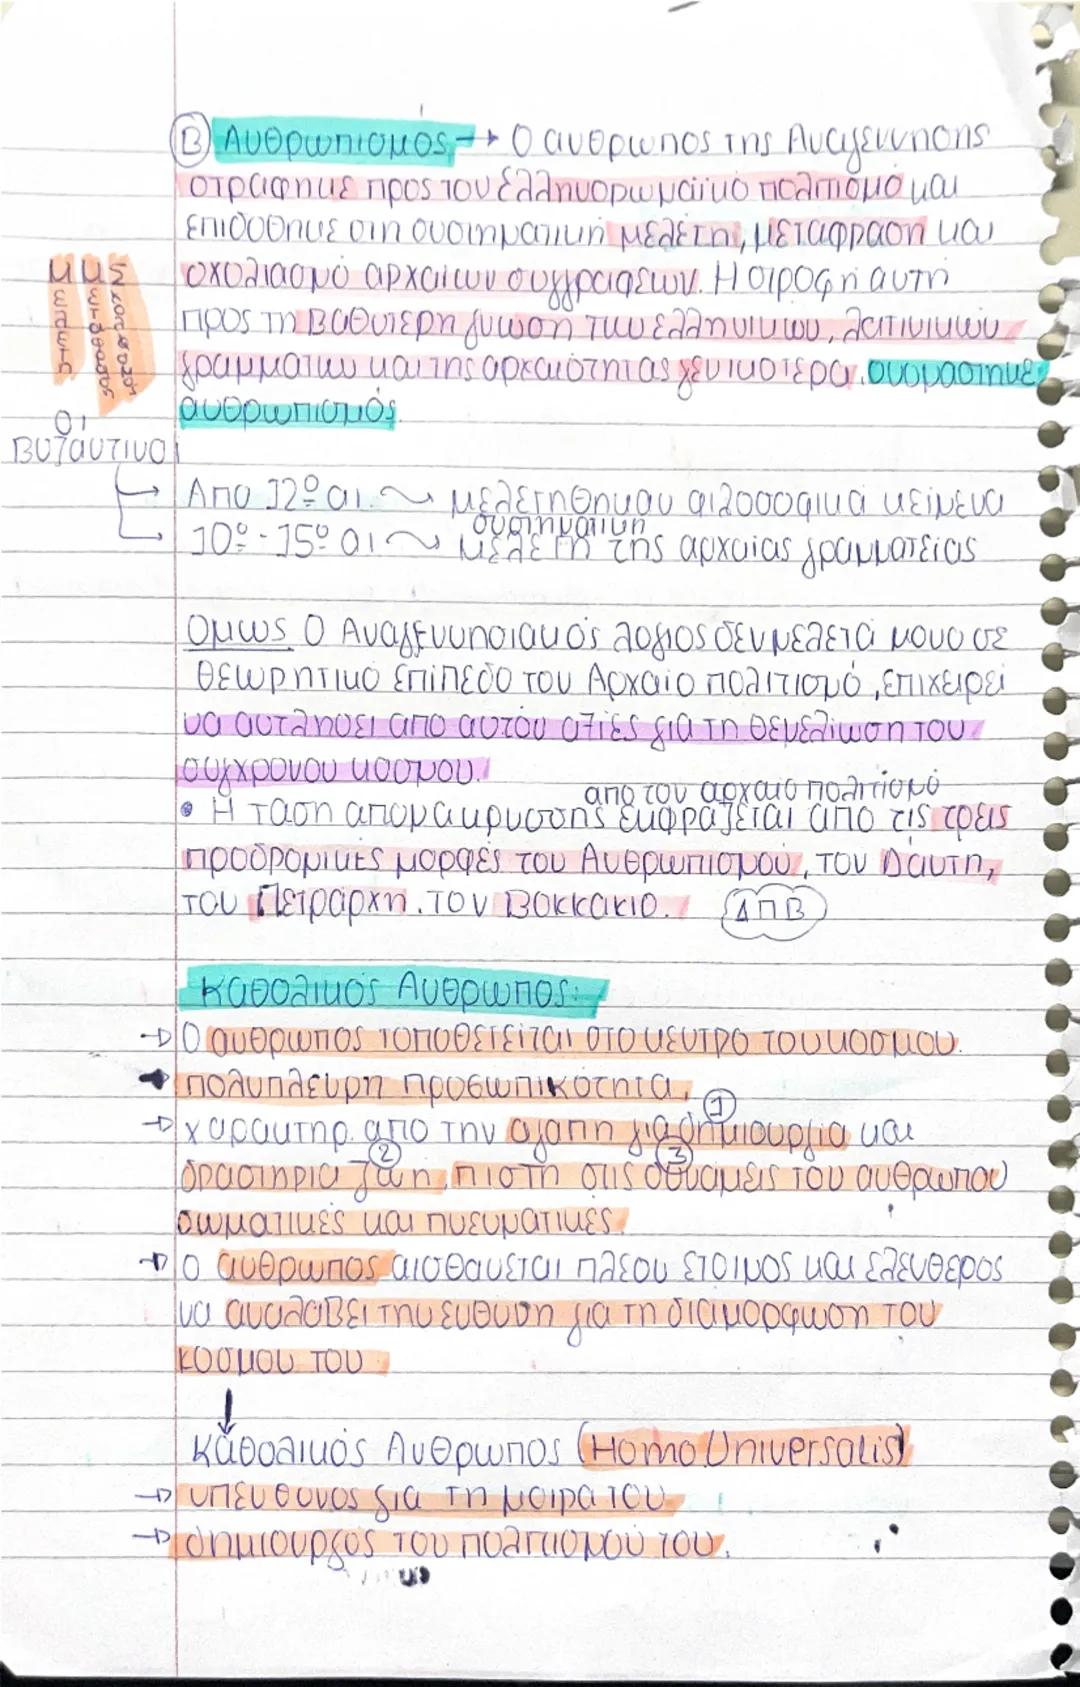 Β Ανθρωπισμός → Ο ανθρωπος της Αναγέννησης
στράφηκε προς τον ελληνορωμαϊκό πολιτισμό και
επιδόθηκε στη συστηματική μελέτη, μετάφραση και
σχολιασμό αρχαίων συγγραφέων. Η στροφή αυτή
προς τη βαθύτερη γνώση των ελληνικων, λατινικών
γραμματων και της αρχαιότητας γενικοτερα, ονομαστηκε
ανθρωπισμός.
Οι
Βυζαντινοί
→ Απο 12º αι. ~ μελετηθηκαν φιλοσοφικά κείμενα
συστηματικη
→ 10º - 15º αι ~ μελετη της αρχαιας γραμματείας
Ομως Ο Αναγεννησιακός λογιος δεν μελετά μονο σε
θεωρητικό επίπεδο τον Αρχαίο πολιτισμό, επιχειρεί
να αντλησει απο αυτόν αξίες για τη θεμελίωση του
συγχρονου κοσμου.
απο τον αρχαιο πολιτισμό
• Η ταση απομακρυσσης εκφράζεται από τις τρεις
προδρομικές μορφές του Ανθρωπισμού, τον Δάντη,
τον Πετράρχη, τον Βοκκακιο. ΔΠΒ
Καθολικός Ανθρωπος:
→ Ο ανθρωπος τοποθετείται στο κέντρο του κοσμου.
→ πολυπλευρη προσωπικότητα,
1
→ χαρακτηρ. απο την αγαπη για δημιουργία και
2 3
δραστηρια ζωη, πιστη στις δυνάμεις του ανθρωπου
σωματικές και πνευματικές.
→ Ο ανθρωπος αισθανεται πλεον ετοιμος και ελευθερος
να αναλαβει την ευθυνη για τη διαμορφωση του
κοσμου του
↓
Καθολικός Ανθρωπος (Homo Universalis)
→ υπευθυνος για τη μοιρα του
→ δημιουργός του πολιτισμού του.